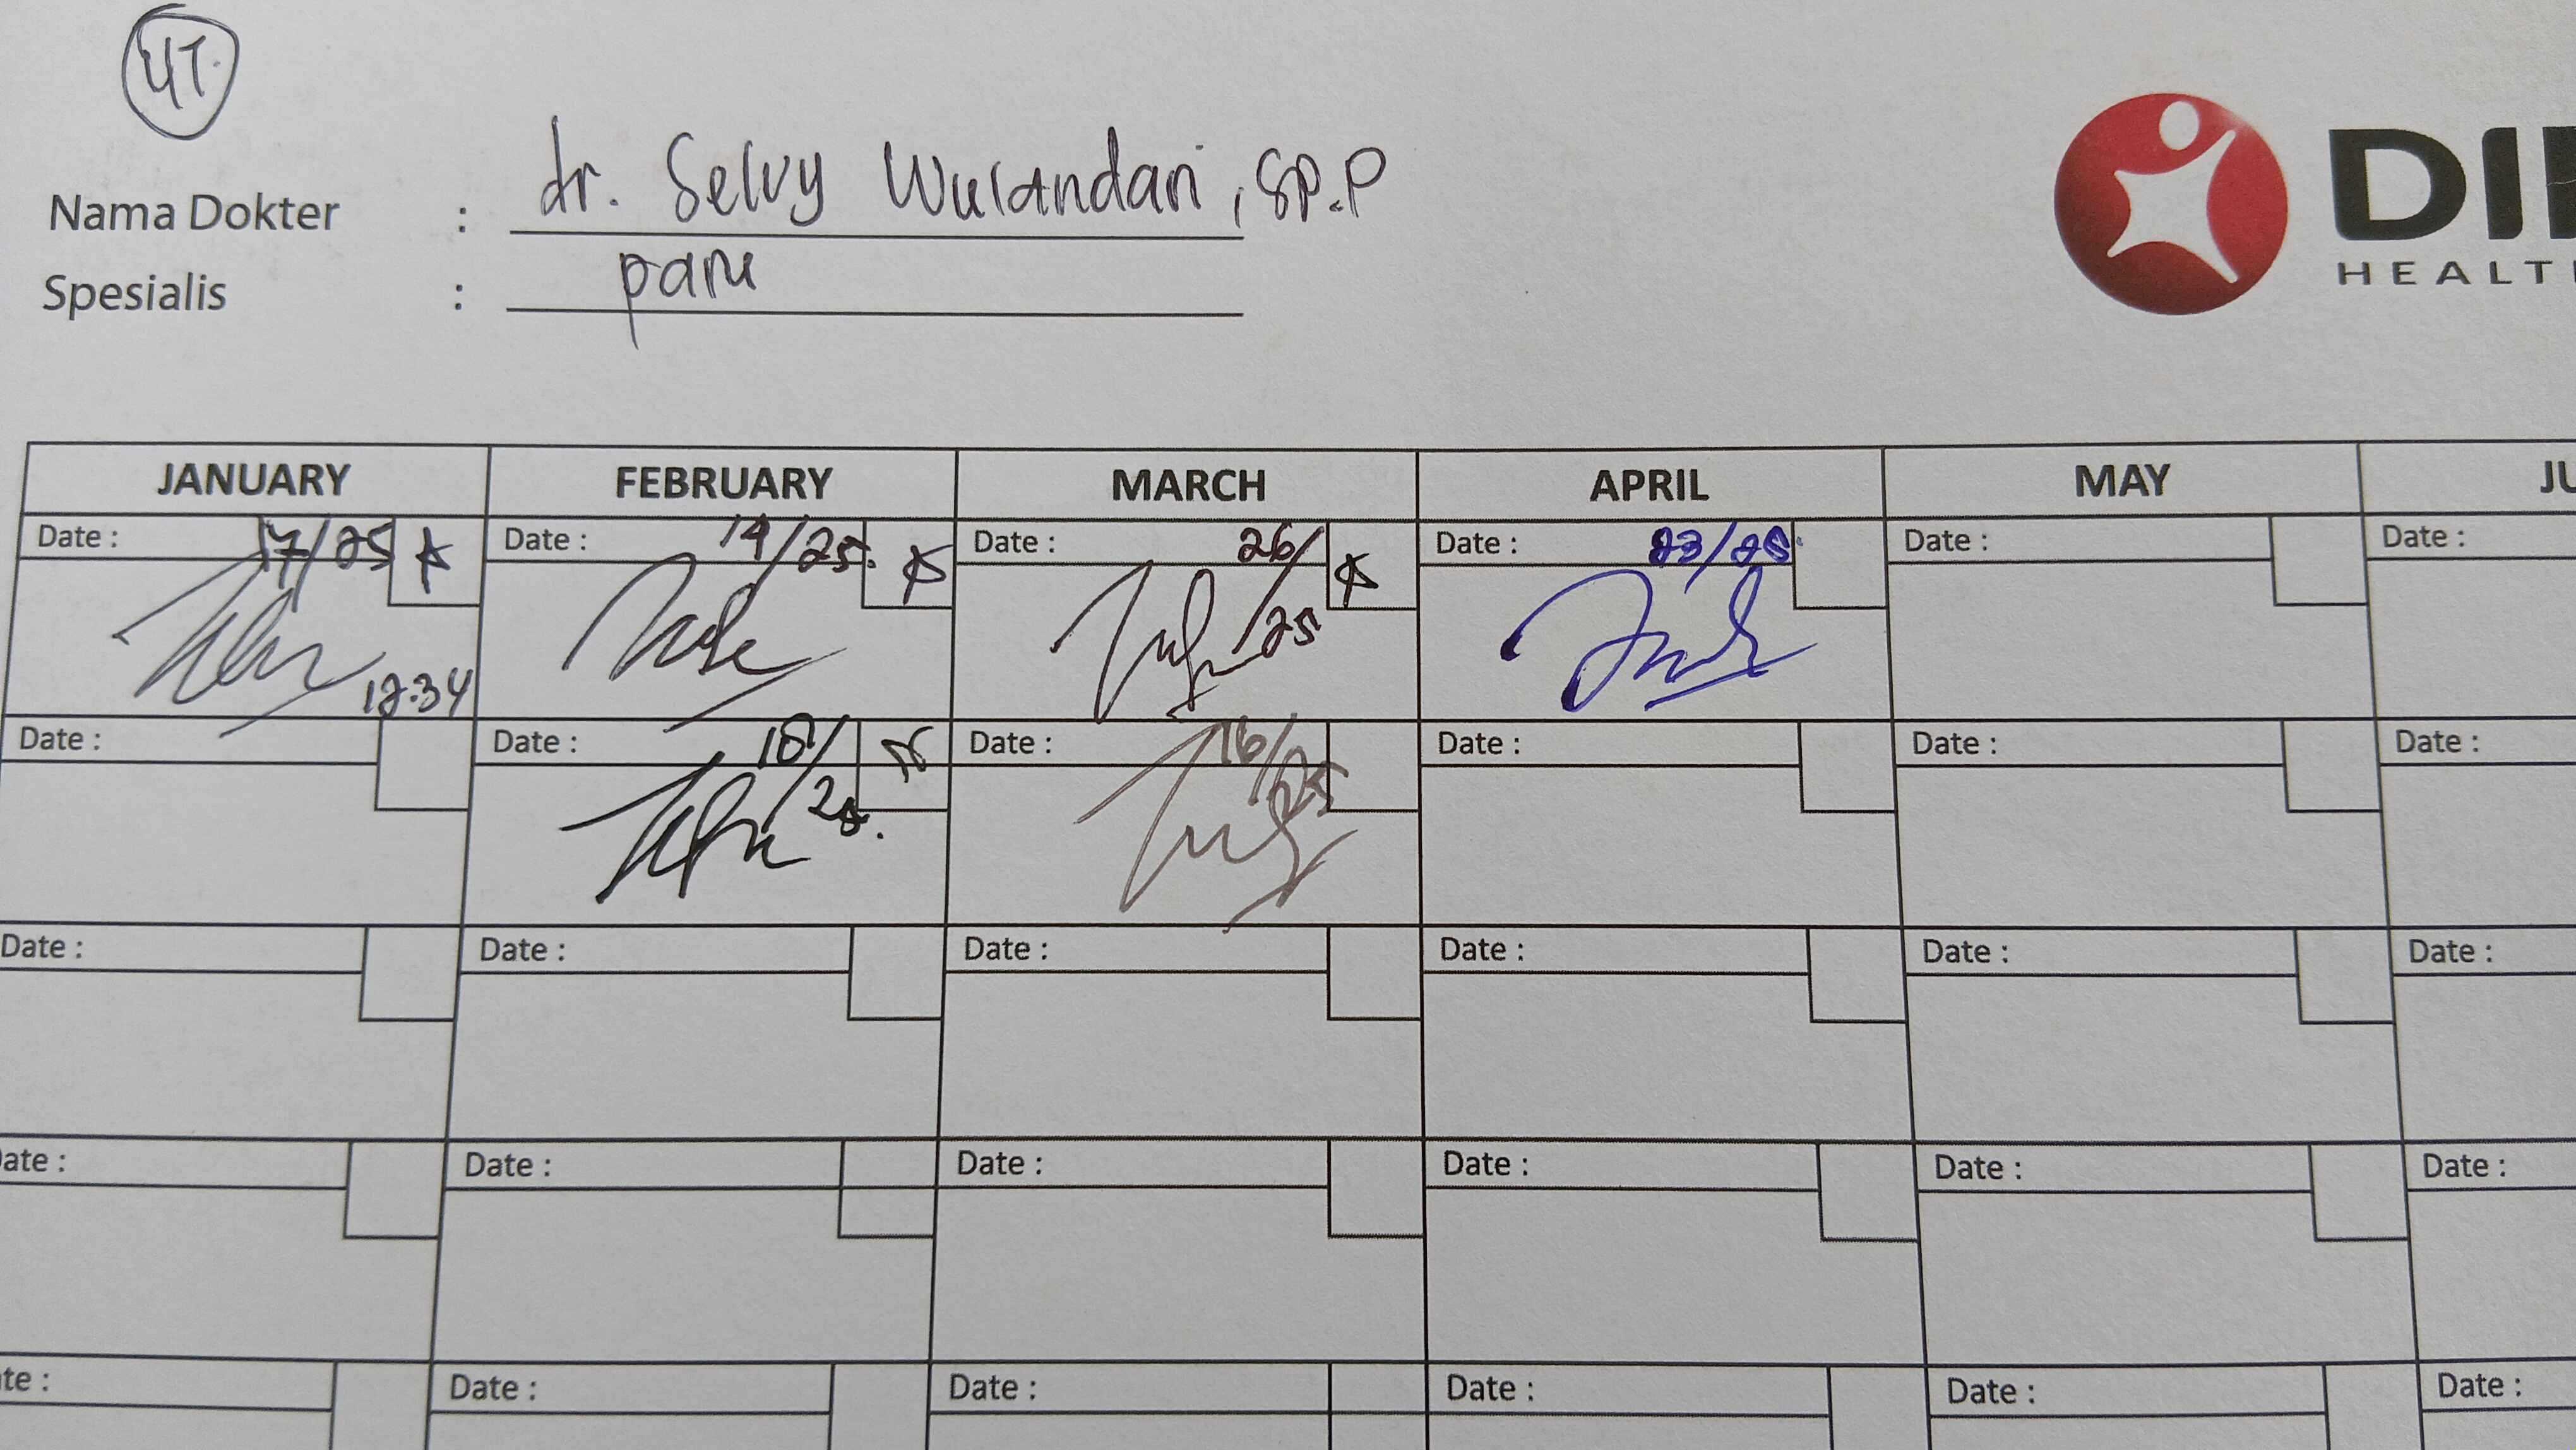 47.
Nama Dokter : dr. Selvy Wulandari, Sp.P
Spesialis : paru
DI
HEALT
JANUARY FEBRUARY MARCH APRIL MAY JU
Date : 17/25 Date : 19/25. Date : 26/25 Date : 23/25 Date : Date :
12.34
Date : Date : 18/25. Date : 16/25 Date : Date : Date :
Date : Date : Date : Date : Date : Date :
ate : Date : Date : Date : Date : Date :
te : Date : Date : Date : Date : Date :